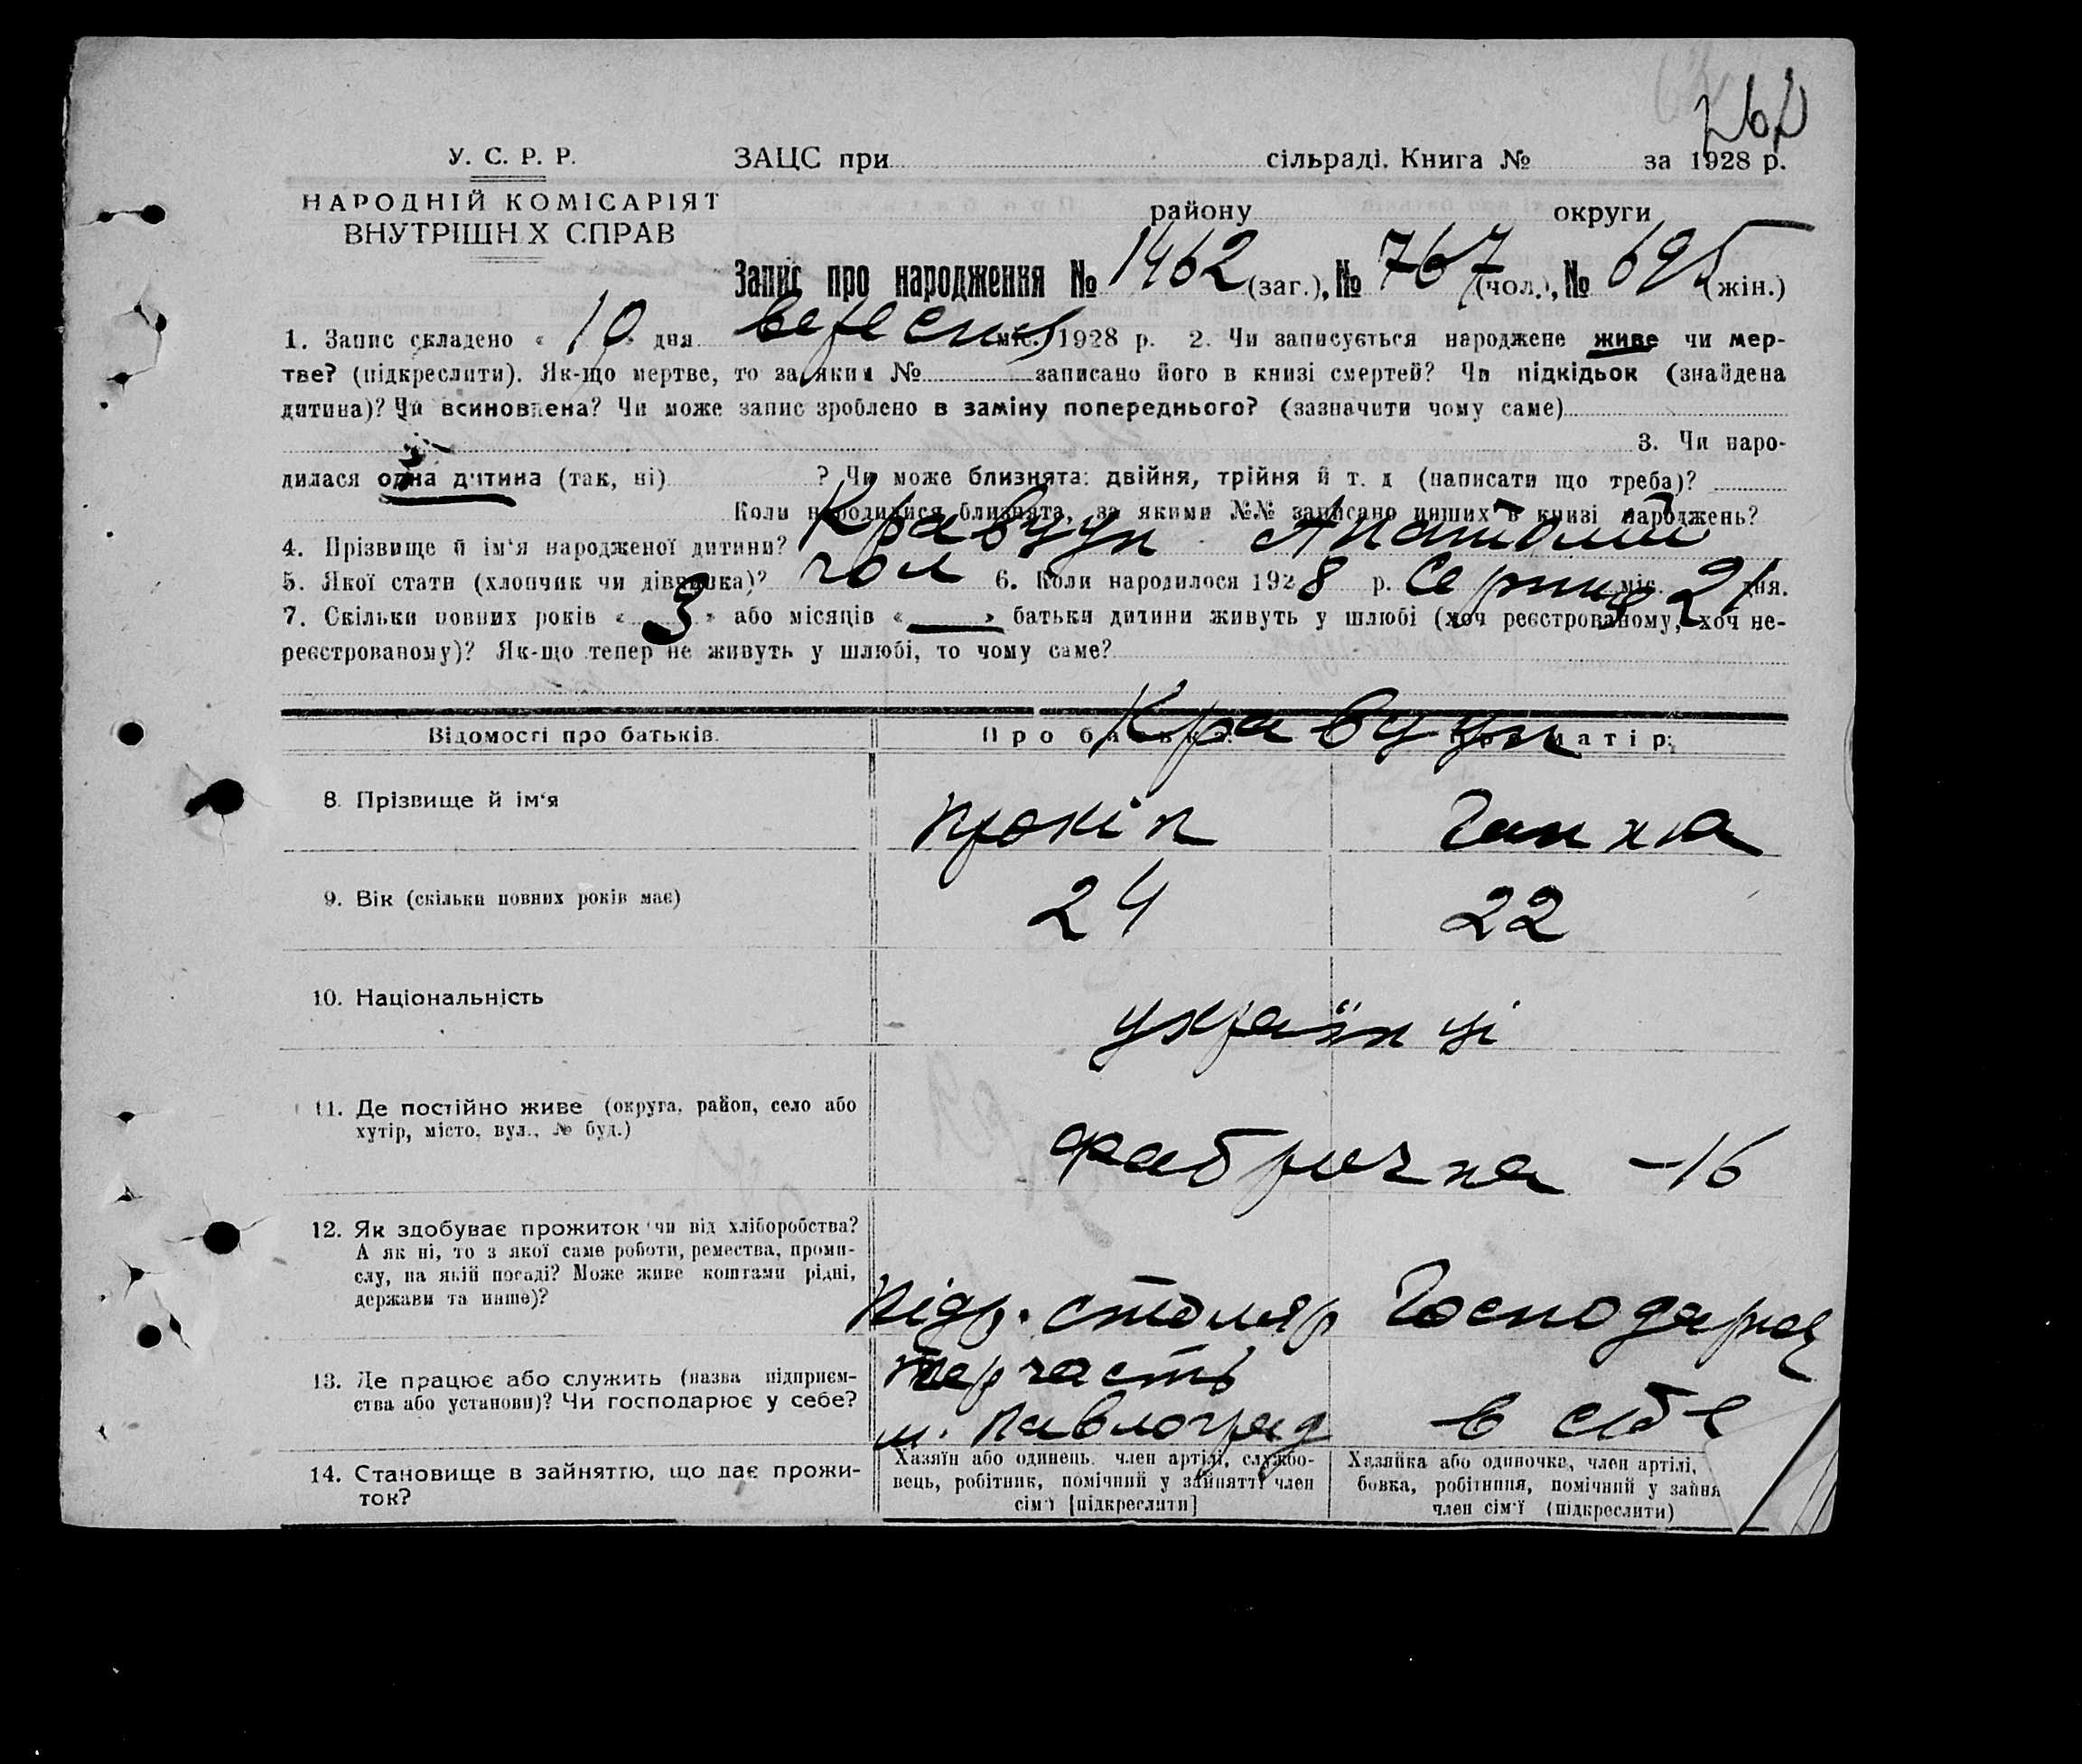 У. С. Р. Р.
НАРОДНІЙ КОМІСАРІЯТ
ВНУТРІШН Х СПРАВ
ЗАЦС при сільраді. Книга № за 1928 р.
району округи
Запис про народження № 1462 (заг.), № 767 (чол.), № 695 (жін.)
1. Запис складено « 10 » дня вересня міс. 1928 р. 2. Чи записується народжене живе чи мер-
тве? (підкреслити). Як-що мертве, то за яким № записано його в книзі смертей? Чи підкідьок (знайдена
дитина)? Чи всиновлена? Чи може запис зроблено в заміну попереднього? (зазначити чому саме)
3. Чи наро-
дилася одна дитина (так, ні) ? Чи може близнята: двійня, трійня й т. д (написати що треба)?
Коли народилися близнята, за якими №№ записано инших в книзі народжень?
4. Прізвище й ім'я народженої дитини? Кравцун Анатолій
5. Якої стати (хлопчик чи дівчинка)? чол 6. Коли народилося 1928 р. Серпня міс. 21 дня.
7. Скільки повних років « 3 » або місяців « — » батьки дитини живуть у шлюбі (хоч реєстрованому, хоч не-
реєстрованому)? Як-що тепер не живуть у шлюбі, то чому саме?
Відомості про батьків. Про батька: Про матір:
Кравцун
8. Прізвище й ім'я Прокіп Ганна
9. Вік (скільки повних років має) 24 22
10. Національність українці
11. Де постійно живе (округа, район, село або
хутір, місто, вул., № буд.) фабрична — 16
12. Як здобуває прожиток чи від хліборобства?
А як ні, то з якої саме роботи, ремества, проми-
слу, на якій посаді? Може живе коштами рідні,
держави та инше)?
підр. столяр Господарює
13. Де працює або служить (назва підприєм-
ства або установи)? Чи господарює у себе?
терчасть
м. Павлоград в себе
14. Становище в зайняттю, що дає прожи-
ток?
Хазяїн або одинець, член артілі, службо-
вець, робітник, помічний у зайнятті член
сім'ї [підкреслити]
Хазяйка або одиночка, член артілі,
бовка, робітниця, помічний у зайня
член сім'ї (підкреслити)